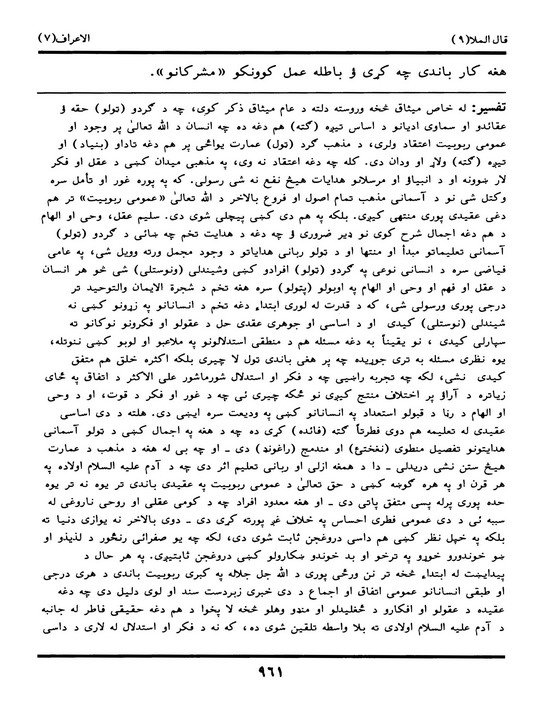 قال الملا(۹)
الاعراف(۷)
هغه کار باندی چه کړی ؤ باطله عمل کوونکو «مشرکانو».
تفسیر: له خاص میثاق څخه وروسته دلته د عام میثاق ذکر کوی، چه د ګردو (تولو) حقه ؤ
عقائدو او سماوی ادیانو د اساس تیږه (ګته) هم دغه ده چه انسان د الله تعالیٰ پر وجود او
عمومی ربوبیت اعتقاد ولری، د مذهب ګرد (تول) عمارت یواځی پر هم دغه تاداو (بنیاد) او
تیږه (ګته) ولاړ او ودان دی. کله چه دغه اعتقاد نه وی، په مذهبی میدان کښی د عقل او فکر
لار ښوونه او د انبیاؤ او مرسلانو هدایات هیڅ نفع نه شی رسولی. که په پوره غور او تأمل سره
وکتل شی نو د آسمانی مذهب تمام اصول او فروع بالاخر د الله تعالیٰ «عمومی ربوبیت» تر هم
دغی عقیدی پوری منتهی کیږی. بلکه په هم دی کښی پیچلی شوی دی. سلیم عقل، وحی او الهام
د هم دغه اجمال شرح کوی نو ډیر ضروری ؤ چه دغه د هدایت تخم چه ښائی د ګردو (تولو)
آسمانی تعلیماتو مبدأ او منتها او د تولو ربانی هدایاتو د وجود مجمل ورته وویل شی، په عامی
فیاضی سره د انسانی نوعی په ګردو (تولو) افرادو کښی وشیندلی (ونوستلی) شی څو هر انسان
د عقل او فهم او وحی او الهام په اوبولو (پتولو) سره هغه تخم د شجرة الایمان والتوحید تر
درجی پوری ورسولی شی، که د قدرت له لوری ابتداء دغه تخم د انسانانو په زړونو کښی نه
شیندلی (نوستلی) کیدی او د اساسی او جوهری عقدی حل د عقولو او فکرونو نوکانو ته
سپارلی کیدی ، نو یقیناً به دغه مسئله هم د منطقی استدلالونو په ملاعبو او لوبو کښی ننوتله،
یوه نظری مسئله به تری جوړیده چه پر هغی باندی تول لا چیری بلکه اکثره خلق هم متفق
کیدی نشی، لکه چه تجربه راښیی چه د فکر او استدلال شورماشور علی الاکثر د اتفاق په ځای
زیاتره د آراؤ پر اختلاف منتج کیږی نو ځکه چیری ئی چه د غور او فکر د قوت، او د وحی
او الهام د رڼا د قبولو استعداد په انسانانو کښی په ودیعت سره ایښی دی. هلته د دی اساسی
عقیدی له تعلیمه هم دوی فطرتاً ګته (فائده) کړی ده چه د هغه په اجمال کښی د تولو آسمانی
هدایتونو تفصیل منطوی (نغښتئ) او مندمج (راغونډ) دی ـ او چه بی له هغه د مذهب د عمارت
هیڅ ستن نشی دریدلی ـ دا د همغه ازلی او ربانی تعلیم اثر دی چه د آدم علیه السلام اولاده په
هر قرن او په هره ګوښه کښی د حق تعالیٰ د عمومی ربوبیت په عقیدی باندی تر یوه نه تر یوه
حده پوری پرله پسی متفق پاتی دی ـ او هغه معدود افراد چه د کومی عقلی او روحی ناروغی له
سببه ئی د دی عمومی فطری احساس په خلاف غږ پورته کړی دی ـ دوی بالاخر نه یوازی دنیا ته
بلکه په خپل نظر کښی هم داسی دروغجن ثابت شوی دی، لکه چه یو صفرائی رنځور د لذیذو او
ښو خوندورو خوړو په ترخو او بد خوندو ښکارولو کښی دروغجن ثابتیږی. په هر حال د
پیدایښت له ابتداء څخه تر نن ورځی پوری د الله جل جلاله په کبری ربوبیت باندی د هری درجی
او طبقی انسانانو عمومی اتفاق او اجماع د دی خبری زبردست سند او لوی دلیل دی چه دغه
عقیده د عقولو او افکارو د ځغلیدلو او منډو وهلو څخه لا پخوا د هم دغه حقیقی فاطر له جانبه
د آدم علیه السلام اولادی ته بلا واسطه تلقین شوی ده، که نه د فکر او استدلال له لاری د داسی
۹۶۱